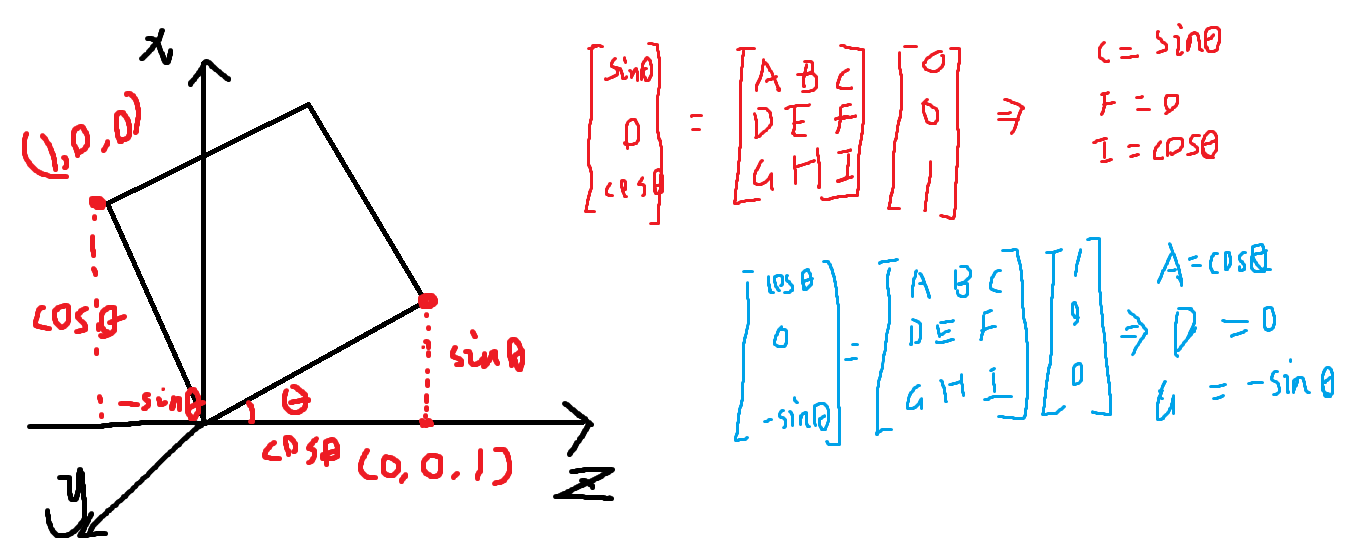 x
(1,0,0)
cosθ
-sinθ
θ
cosθ
sinθ
(0,0,1)
z
y
[sinθ 0 cosθ] = [A B C D E F G H I] [0 0 1] ⇒
C = sinθ
F = 0
I = cosθ
[cosθ 0 -sinθ] = [A B C D E F G H I] [1 0 0] ⇒
A = cosθ
D = 0
G = -sinθ